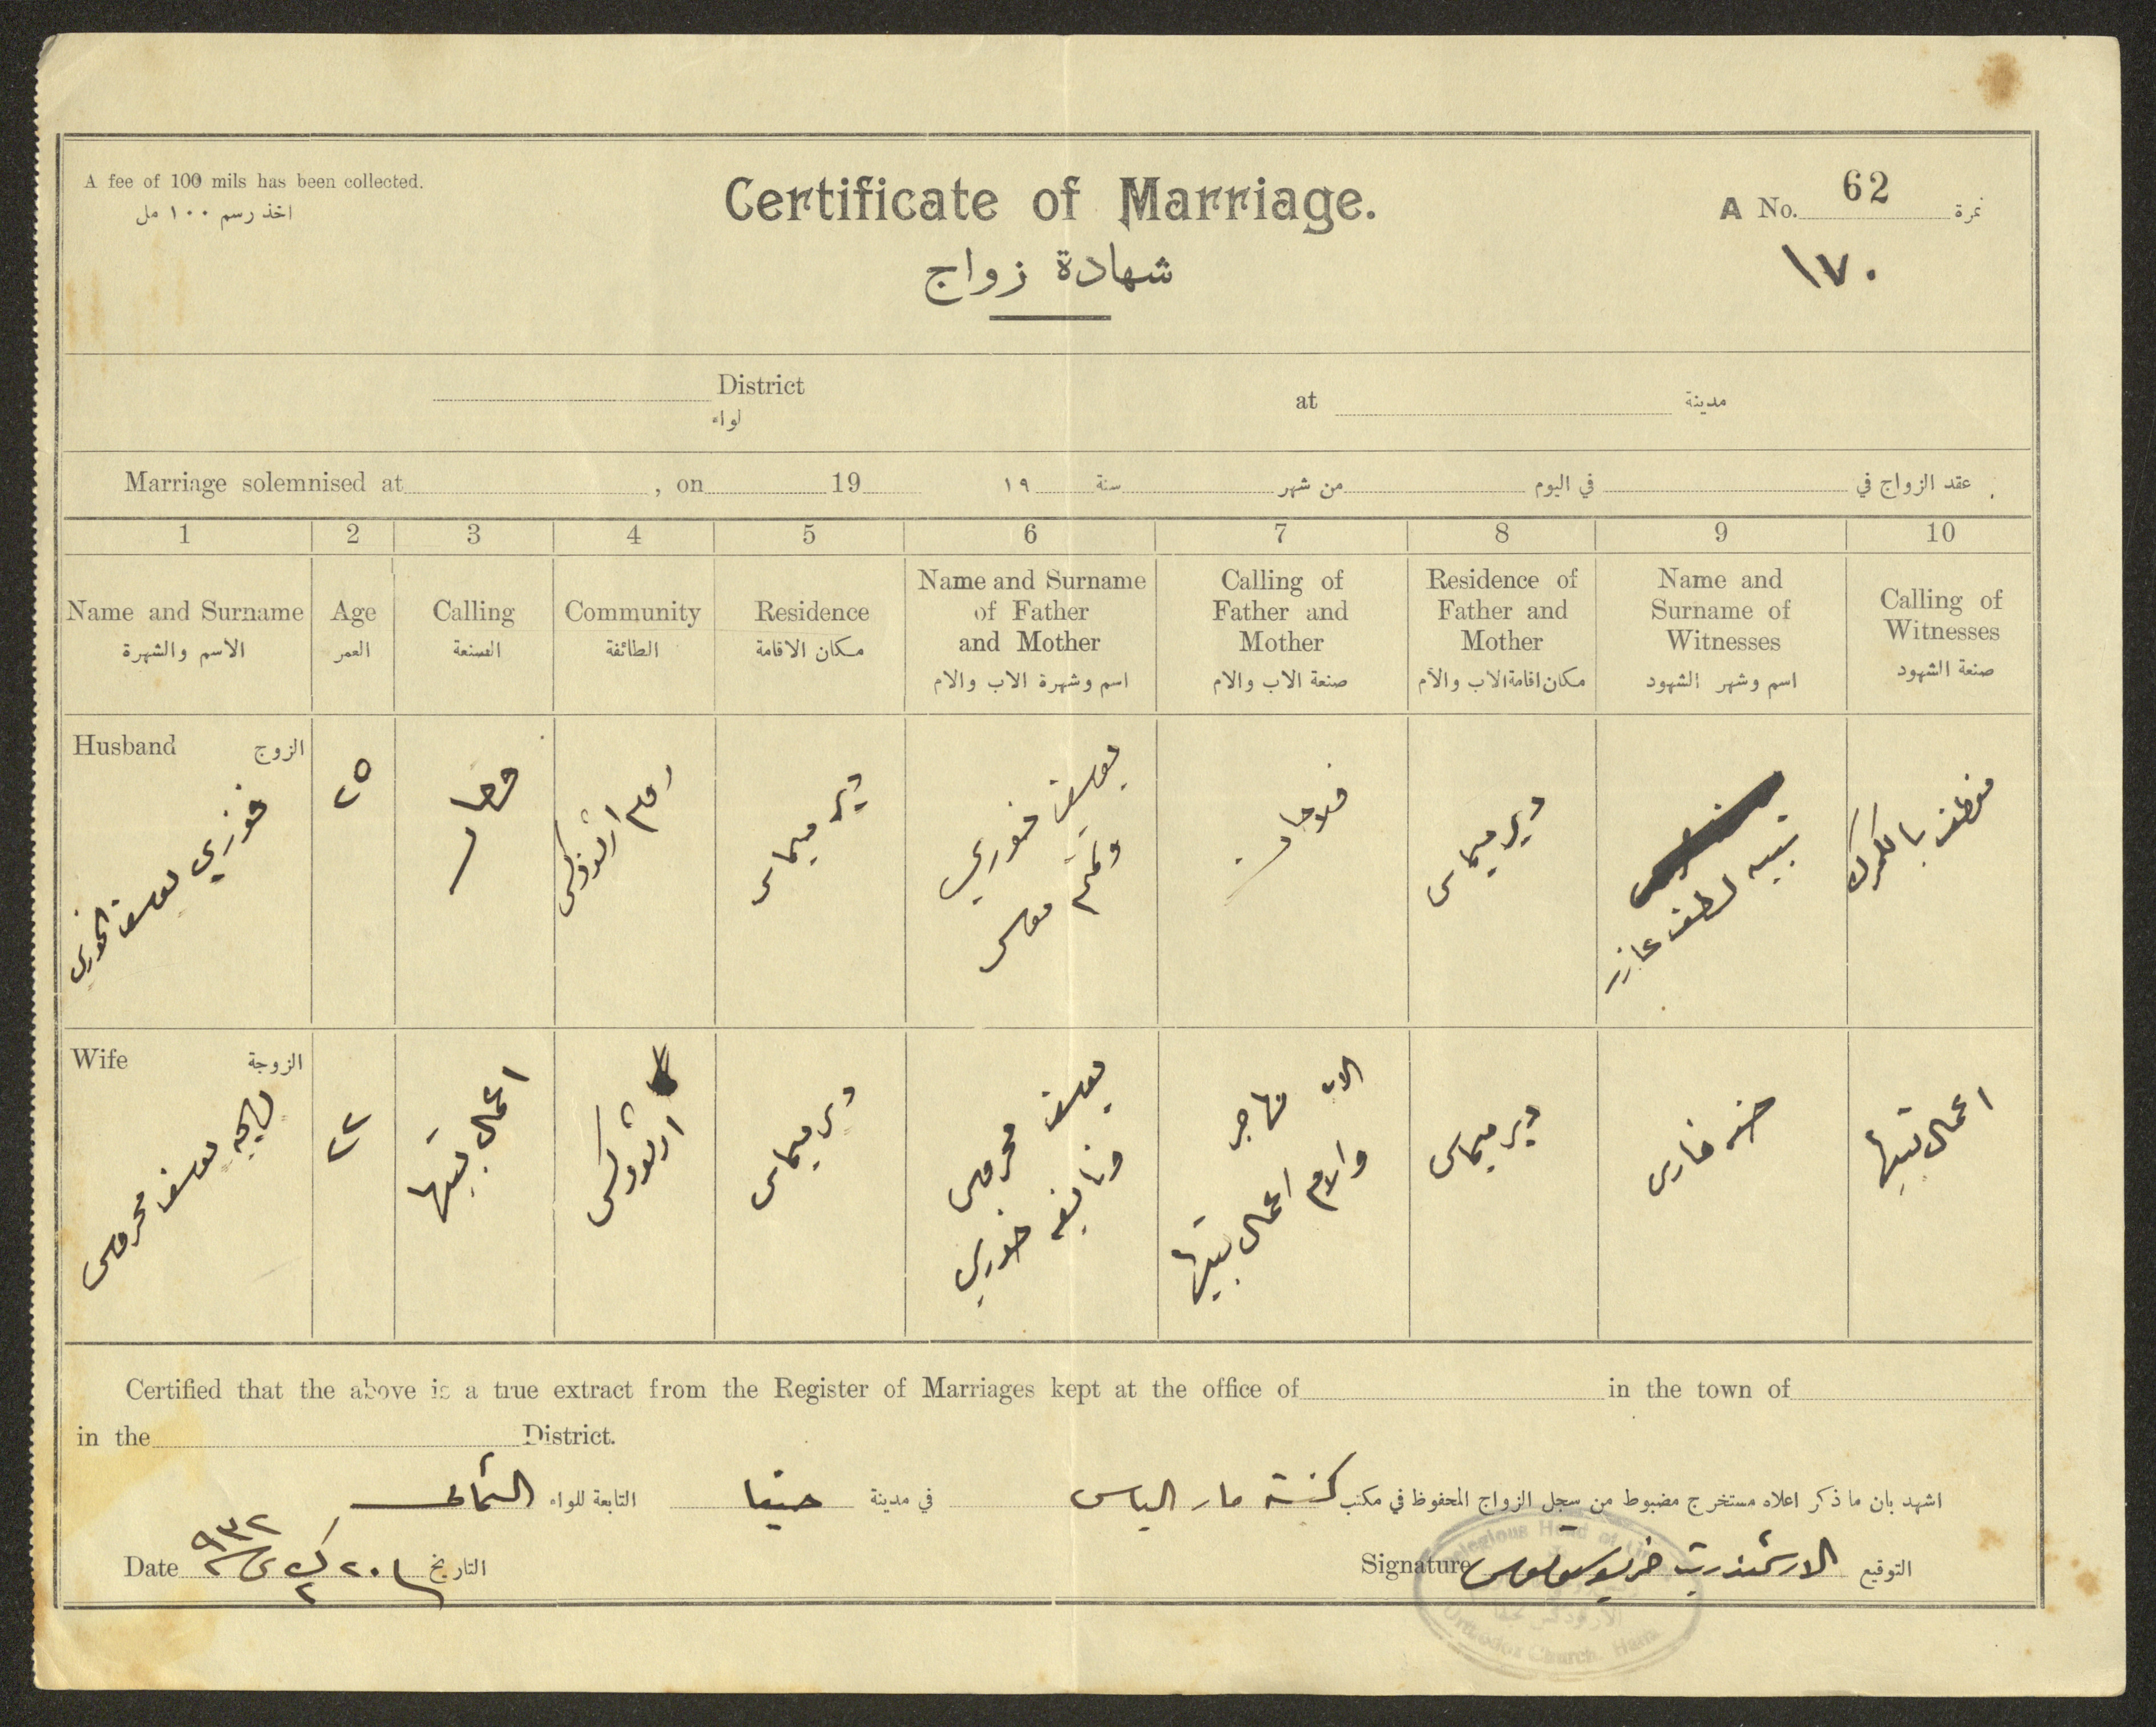 A fee of 100 mils has been collected.
اخذ رسم ١٠٠ مل
Certificate of Marriage.
شهادة زواج
A No. 62 نمرة
١٧٠
District
لواء
at مدينة
Marriage solemnised at , on 19 ١٩ سنة من شهر في اليوم عقد الزواج في
1 2 3 4 5 6 7 8 9 10
Name and Surname
الاسم والشهرة
Age
العمر
Calling
الصنعة
Community
الطائفة
Residence
مكان الاقامة
Name and Surname
of Father
and Mother
اسم وشهرة الاب والام
Calling of
Father and
Mother
صنعة الاب والام
Residence of
Father and
Mother
مكان اقامة الاب والأم
Name and
Surname of
Witnesses
اسم وشهر الشهود
Calling of
Witnesses
صنعة الشهود
Husband الزوج
فوزي يوسف الخوري
٢٥
روم ارثوذكس
دير ميماس
يوسف خوري
موسى
فلاحان
دير ميماس
لطف عازر
موظف بالكمرك
Wife الزوجة
يوسف محروس
٢٢
اعمال بيتها
ارثوذكس
دير ميماس
يوسف محروس
ونايفه خوري
الاب مهاجر
والام اعمال بيتها
دير ميماس
حنه فارس
اعمال بيتها
Certified that the above is a true extract from the Register of Marriages kept at the office of in the town of
in the District.
اشهد بان ما ذكر اعلاه مستخرج مضبوط من سجل الزواج المحفوظ في مكتب كنيسة مار الياس في مدينة حيفا التابعة للواء الشمالي
Date ٩٣٢ ٢ ك ٢٠ التاريخ
Signature الارشمندريت التوقيع
Religious Head of
Orthodox Church. Haifa